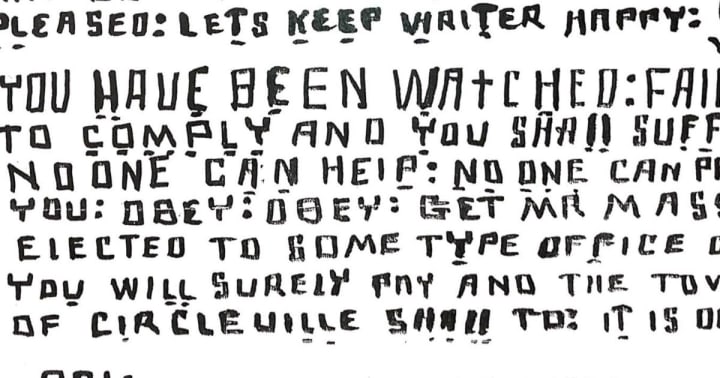 PLEASED: LETS KEEP WRITER HAPPY:
YOU HAVE BEEN WATCHED: FAIL
TO COMPLY AND YOU SHALL SUFF
NO ONE CAN HELP: NO ONE CAN
YOU: OBEY: OBEY: GET MR MASS
ELECTED TO SOME TYPE OFFICE
YOU WILL SURELY PAY AND THE TOW
OF CIRCLEVILLE SHALL TO: IT IS